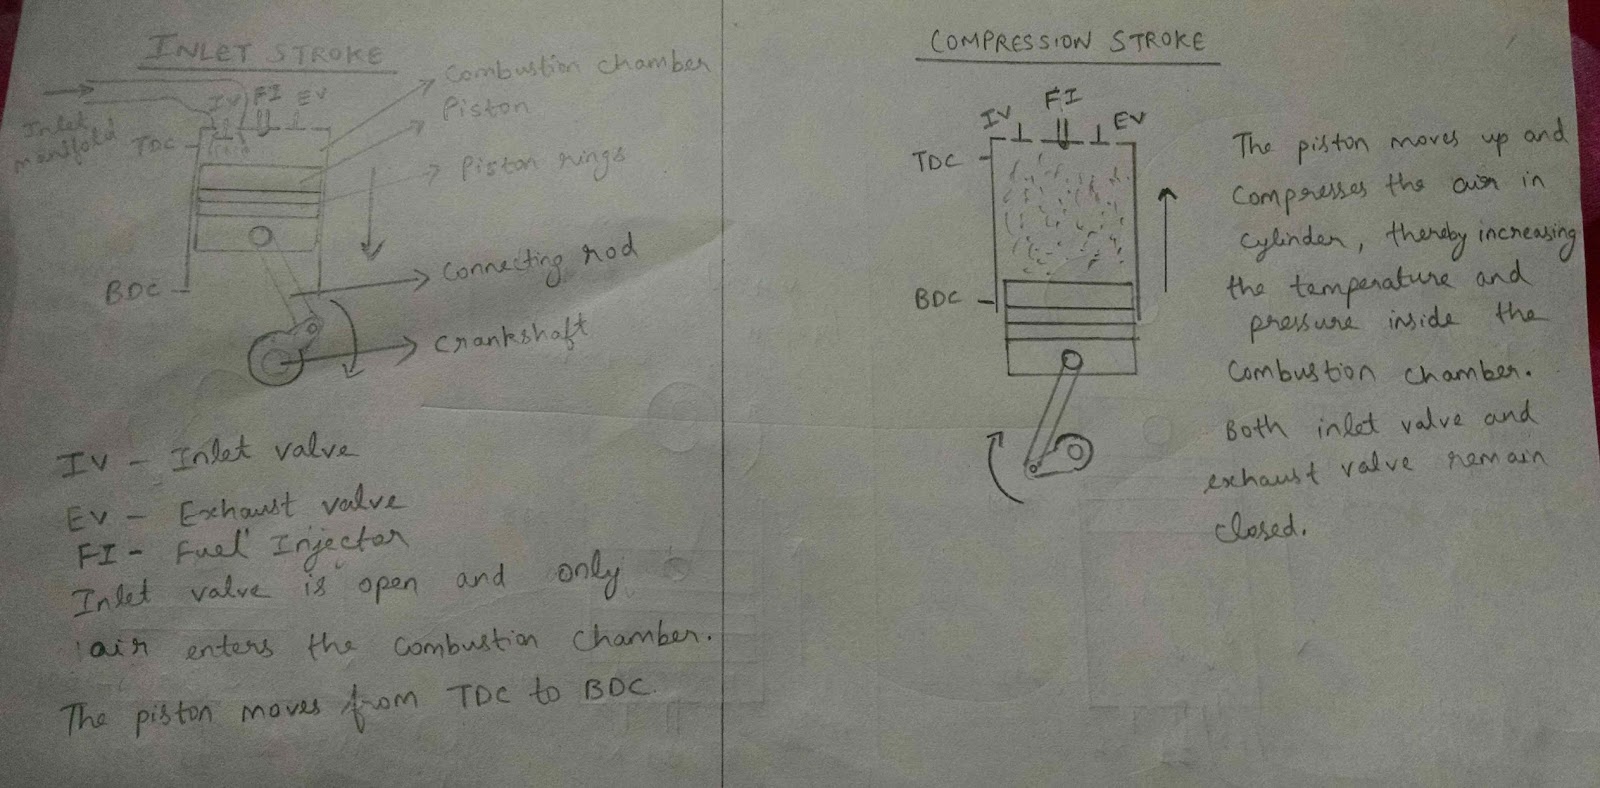 INLET STROKE
Combustion chamber
Piston
IV FI EV
Inlet
manifold
TDC
Piston rings
Connecting rod
BDC
Crankshaft
IV - Inlet valve
EV - Exhaust valve
FI - Fuel Injector
Inlet valve is open and only
air enters the combustion chamber.
The piston moves from TDC to BDC.
COMPRESSION STROKE
IV FI EV
TDC
BDC
The piston moves up and
compresses the air in
cylinder, thereby increasing
the temperature and
pressure inside the
combustion chamber.
Both inlet valve and
exhaust valve remain
closed.